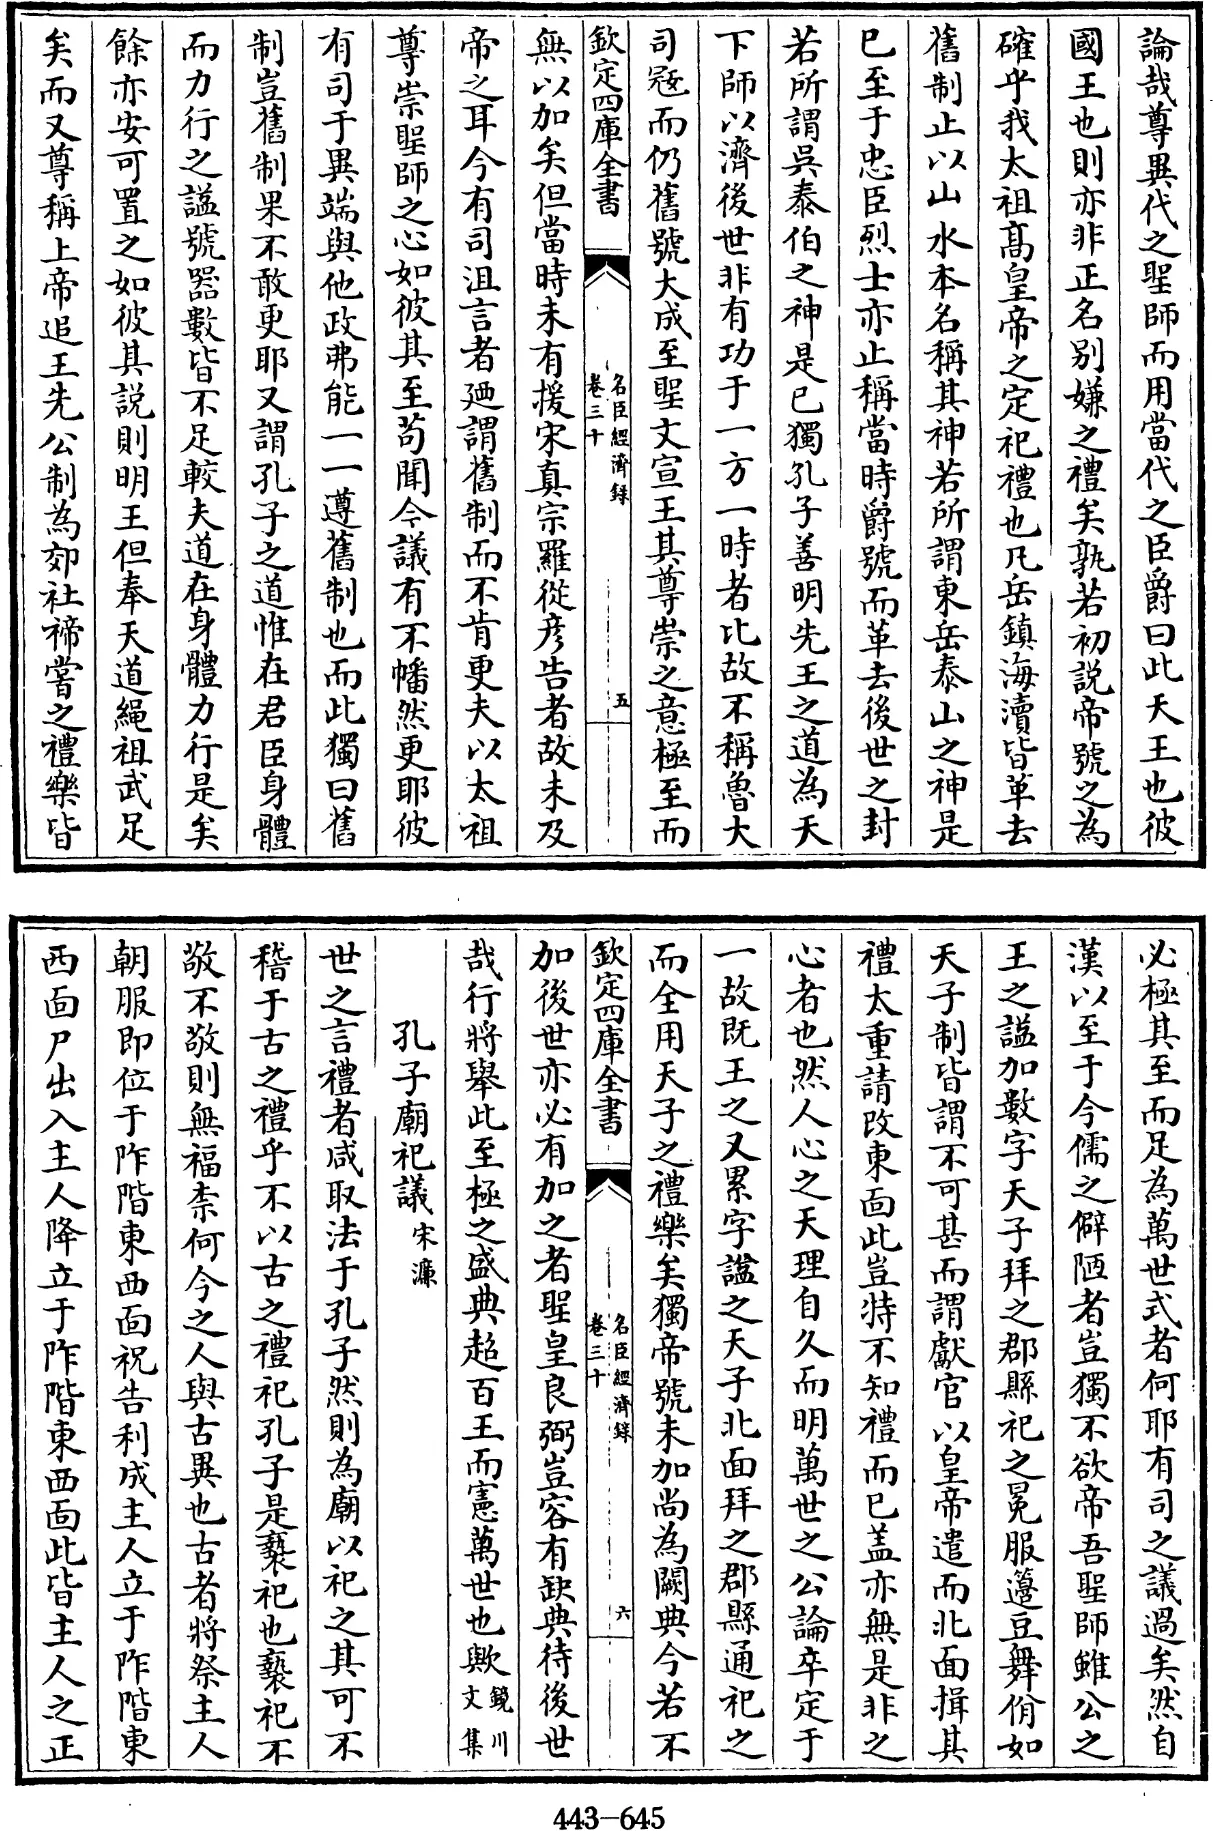 論哉尊異代之聖師而用當代之臣爵曰此天王也彼
國王也則亦非正名别嫌之禮矣孰若初説帝號之為
確乎我太祖高皇帝之定祀禮也凡岳鎮海瀆皆革去
舊制止以山水本名稱其神若所謂東岳泰山之神是
已至于忠臣烈士亦止稱當時爵號而革去後世之封
若所謂吳泰伯之神是已獨孔子善明先王之道為天
下師以濟後世非有功于一方一時者比故不稱魯大
司冦而仍舊號大成至聖文宣王其尊崇之意極至而
欽定四庫全書
名臣經濟録
卷三十
五
無以加矣但當時未有援宋真宗羅從彦告者故未及
帝之耳今有司沮言者廼謂舊制而不肯更夫以太祖
尊崇聖師之心如彼其至苟聞今議有不幡然更耶彼
有司于異端與他政弗能一一遵舊制也而此獨曰舊
制豈舊制果不敢更耶又謂孔子之道惟在君臣身體
而力行之諡號器數皆不足較夫道在身體力行是矣
餘亦安可置之如彼其説則明王但奉天道繩祖武足
矣而又尊稱上帝追王先公制為郊社禘嘗之禮樂皆
必極其至而足為萬世式者何耶有司之議過矣然自
漢以至于今儒之僻陋者豈獨不欲帝吾聖師雖公之
王之諡加數字天子拜之郡縣祀之冕服籩豆舞佾如
天子制皆謂不可甚而謂獻官以皇帝遣而北面揖其
禮太重請改東面此豈特不知禮而已蓋亦無是非之
心者也然人心之天理自久而明萬世之公論卒定于
一故既王之又累字諡之天子北面拜之郡縣通祀之
而全用天子之禮樂矣獨帝號未加尚為闕典今若不
欽定四庫全書
名臣經濟録
卷三十
六
加後世亦必有加之者聖皇良弼豈容有缺典待後世
哉行將舉此至極之盛典超百王而憲萬世也歟鏡川文集
孔子廟祀議宋濂
世之言禮者咸取法于孔子然則為廟以祀之其可不
稽于古之禮乎不以古之禮祀孔子是褻祀也褻祀不
敬不敬則無福柰何今之人與古異也古者將祭主人
朝服即位于阼階東西面祝告利成主人立于阼階東
西面尸出入主人降立于阼階東西面此皆主人之正
443-645